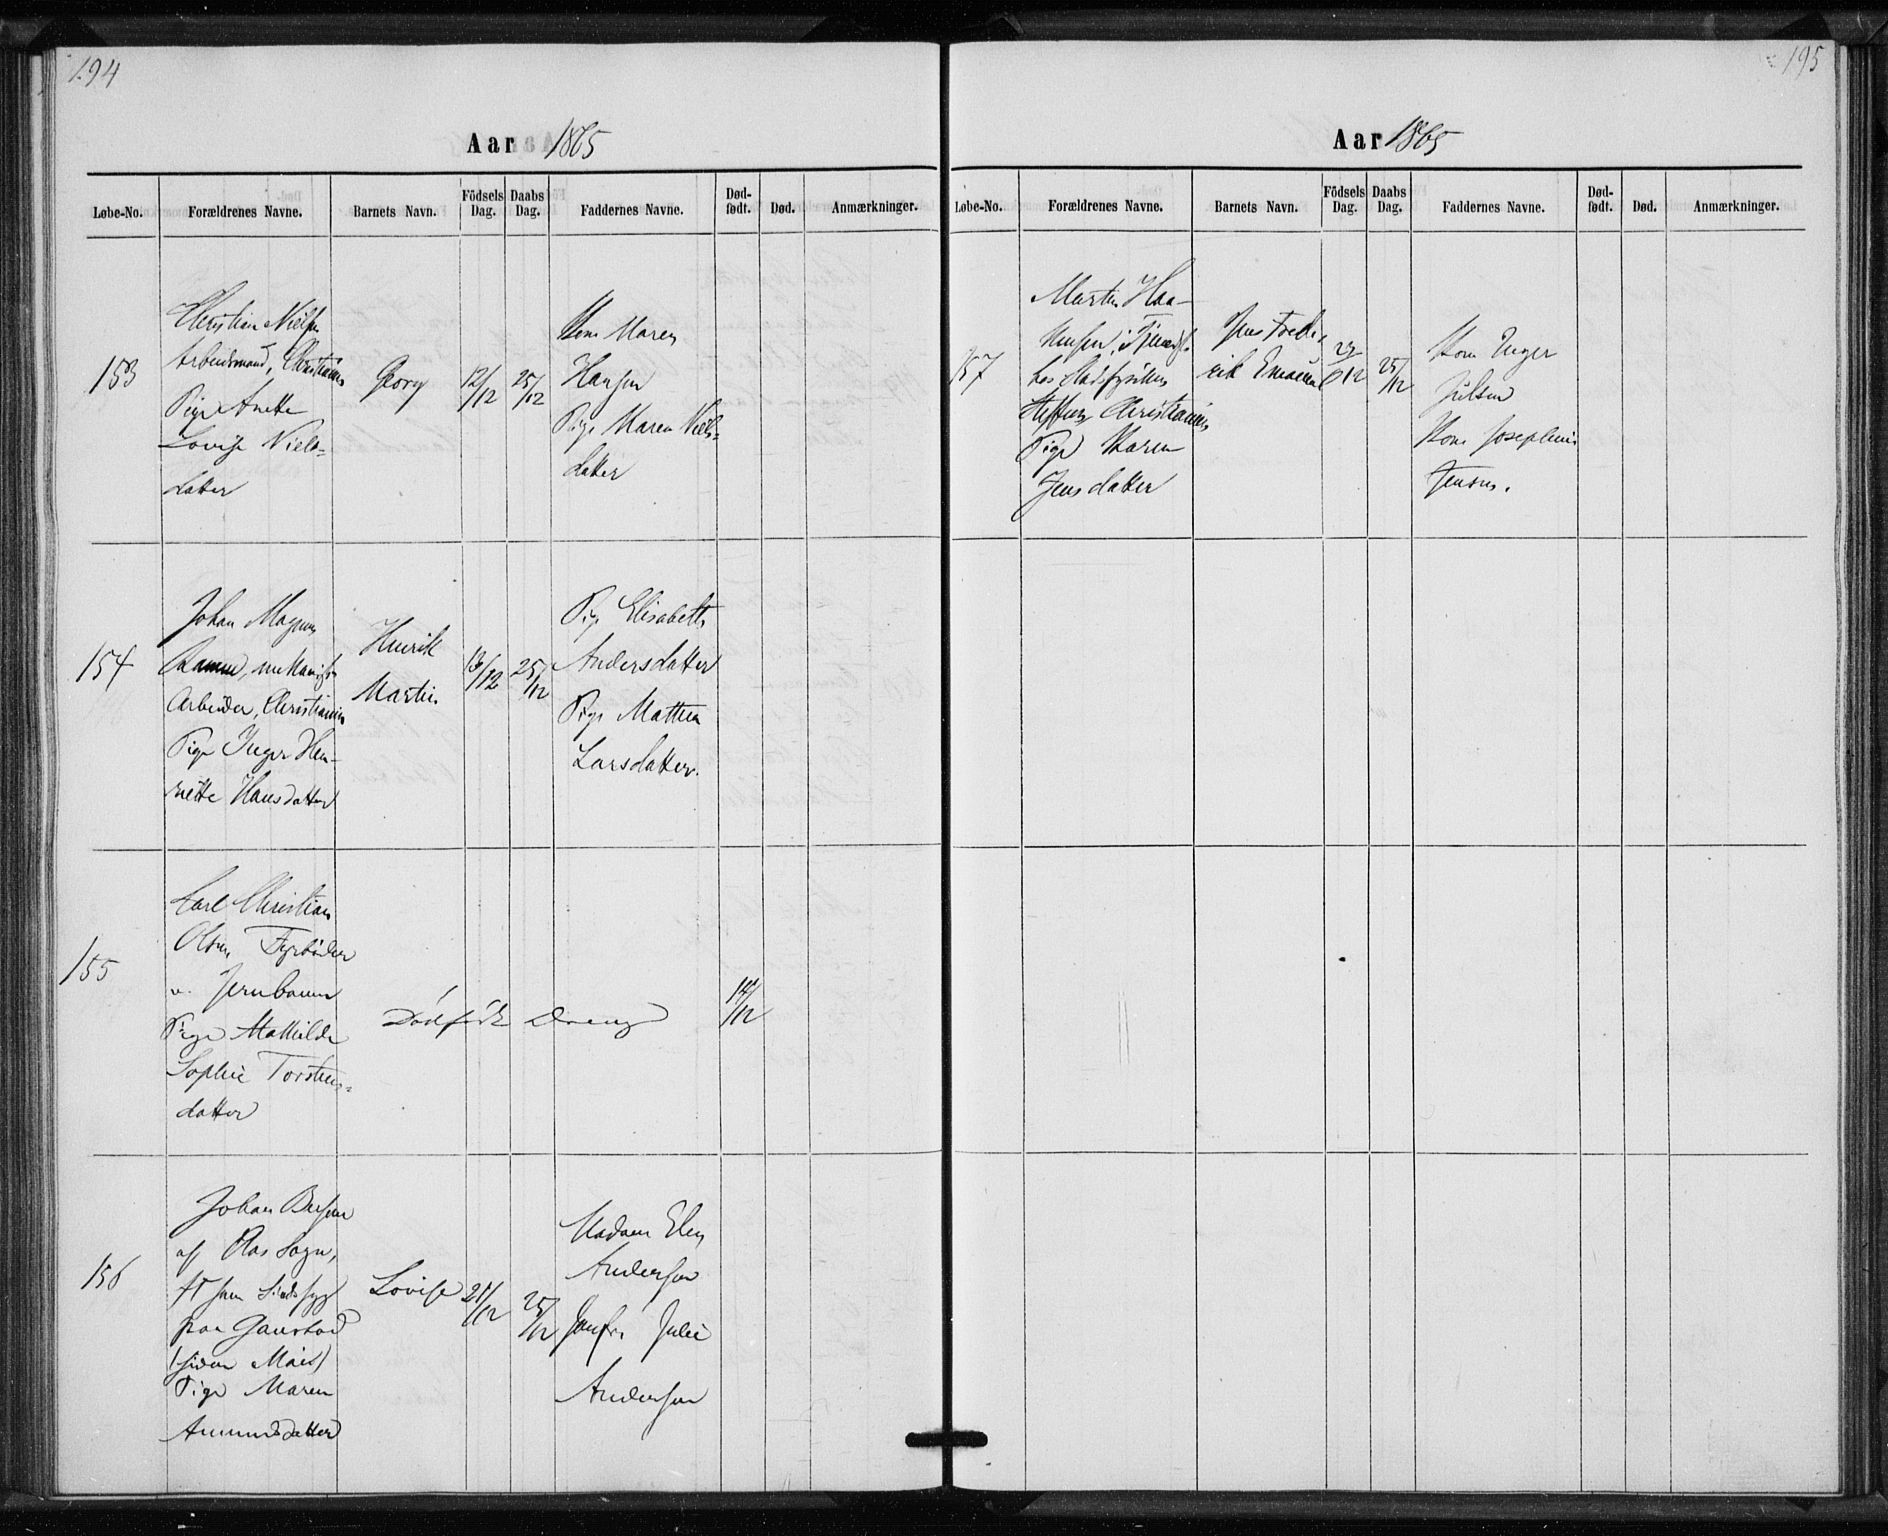 194
Aar 1865
Løbe-No. Forældrenes Navne. Barnets Navn. Födsels Dag. Daabs Dag. Faddernes Navne. Død-født. Død. Anmærkninger.
153
Christian Nielsen
Arbeidsmand, Christiania
Pige Anette
Lovise Niels=
datter
Georg
12/12
25/12
Kone Maren
Hansen
Pige Maren Niels=
datter
154
Johan Magnus
mekanisk
Arbeider, Christiania
Pige Inger Hen-
riette Hansdatter
Henrik
Martin
13/12
25/12
Pige Elisabeth
Andersdatter
Pige Mathea
Larsdatter.
155
Carl Christian
Olsen, Fyrböder
v. Jernbanen
Pige Mathilde
Sophie Torstens=
datter
Dödfödt Dreng
14/12
156
Johan
af Aas Sogn,
Sindssyg
paa Gaustad
(siden Mais)
Pige Maren
Amundsdatter
Lovise
21/12
25/12
Madam Elen
Andersen
Jomfru Julie
Andersen
195
Aar 1865
Løbe-No. Forældrenes Navne. Barnets Navn. Födsels Dag. Daabs Dag. Faddernes Navne. Død-født. Død. Anmærkninger.
157
Martin Haa-
kensen, i Tjeneste
hos Stadsfysikus
Steffens Christiania
Pige Karen
Jensdatter
Jens Frede=
rik Emanuel
25/12
Kone Inger
Julsen
Kone Josephine
Jensen.